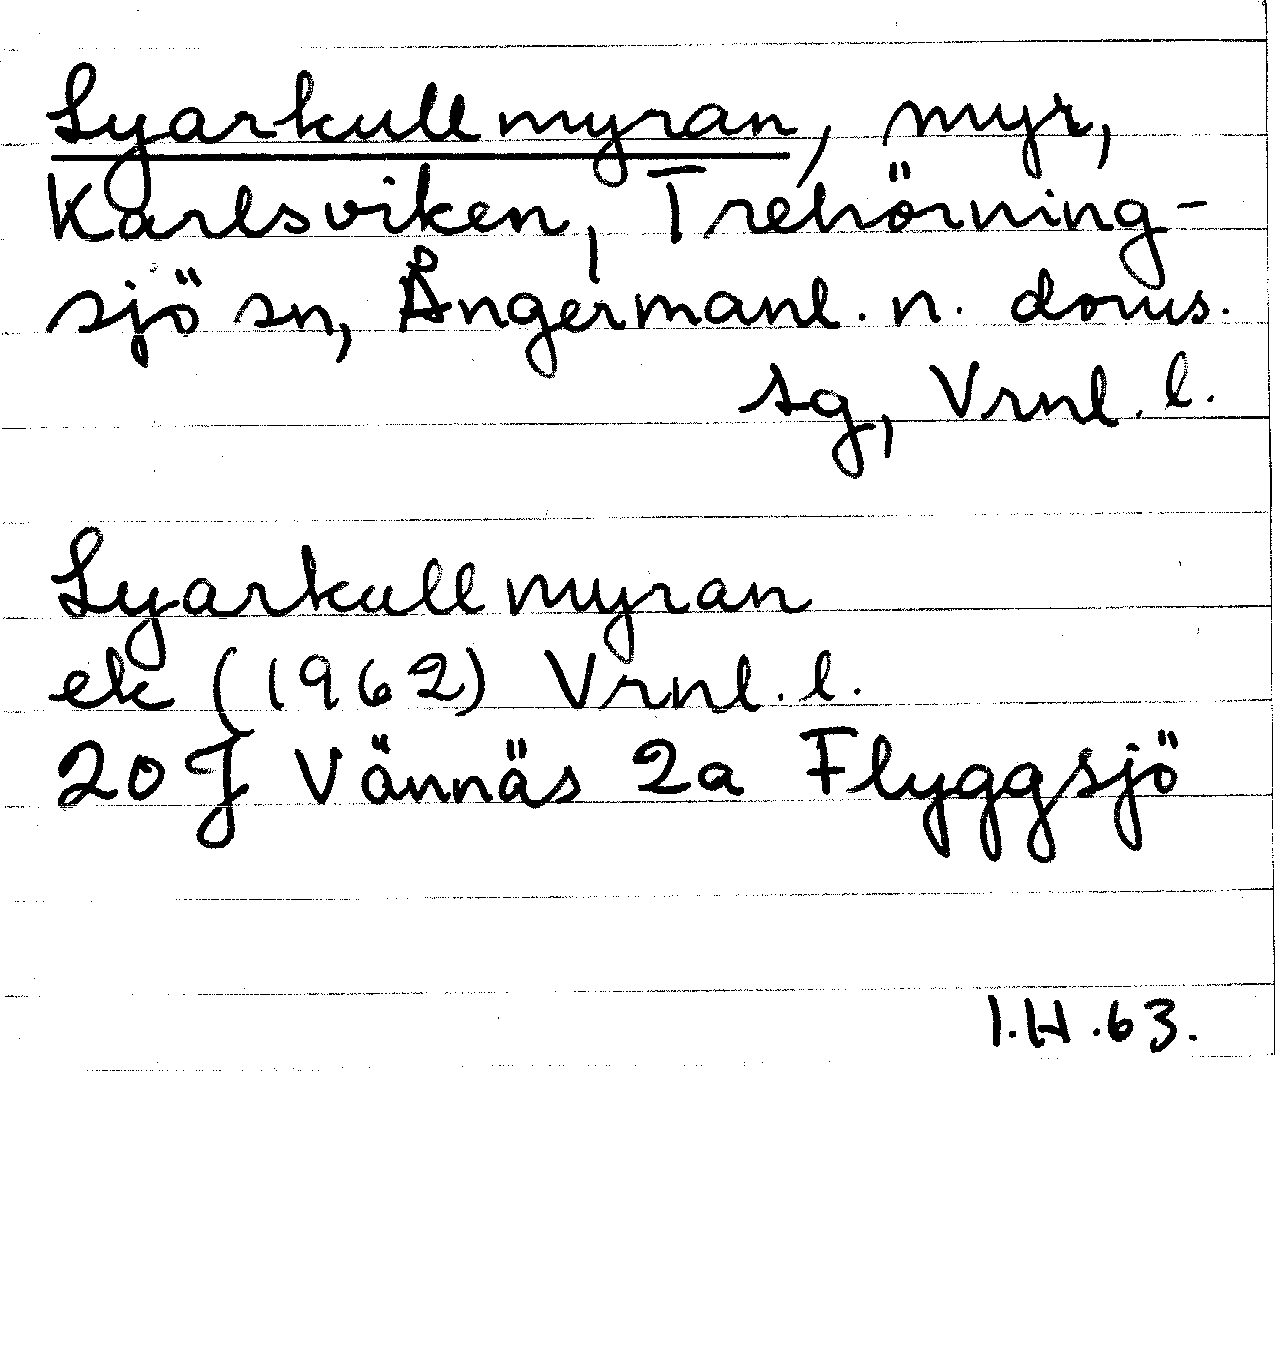 Lyarkullmyran, myr,
Karlsviken, Trehörning-
sjö sn, Ångermanl. n. doms.
sg, Vrnl. l.
Lyarkullmyran
ek (1962) Vrnl. l.
20 J Vännäs 2a Flyggsjö
I.H.63.